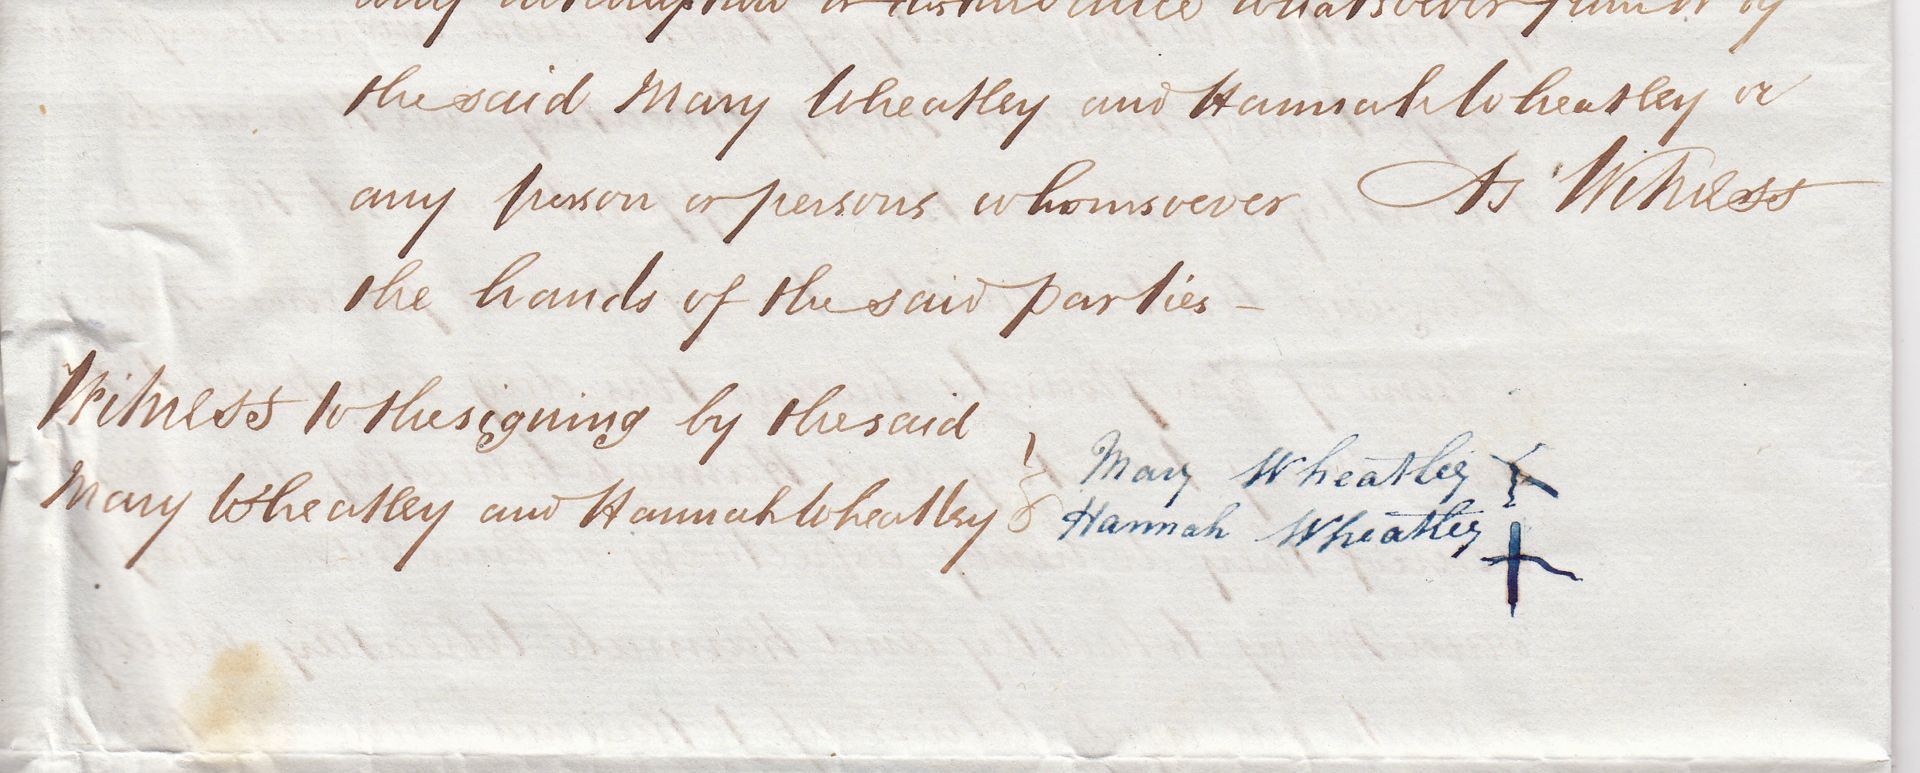 any interruption or disturbance whatsoever from or by
the said Mary Wheatley and Hannah Wheatley or
any person or persons whomsoever As Witness
the hands of the said parties –
Witness to the signing by the said
Mary Wheatley and Hannah Wheatley }
Mary Wheatley
Hannah Wheatley